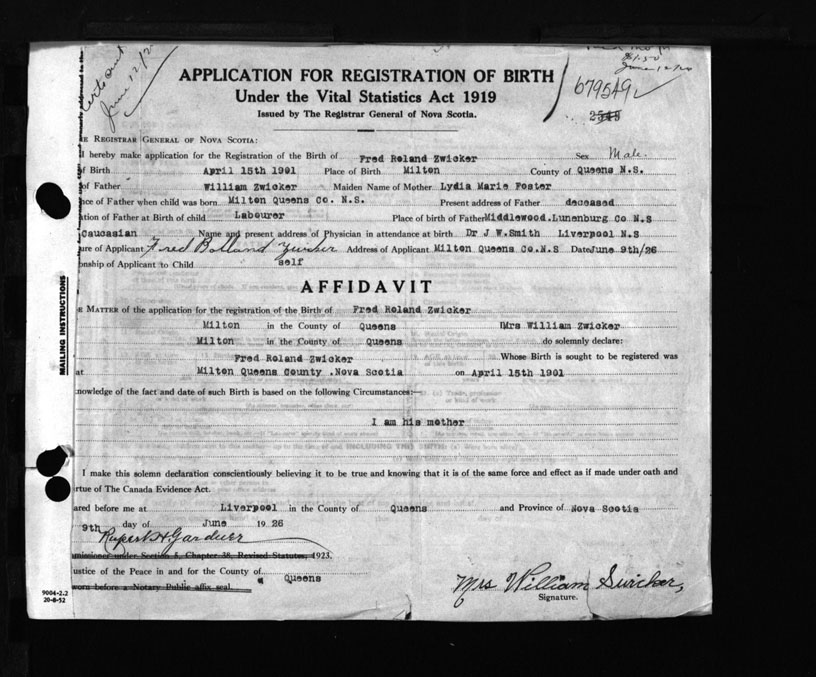 Certs out
June 12/2
$1.50
June 12/26
APPLICATION FOR REGISTRATION OF BIRTH
679549
Under the Vital Statistics Act 1919
Issued by The Registrar General of Nova Scotia.
E REGISTRAR GENERAL OF NOVA SCOTIA:
I hereby make application for the Registration of the Birth of Fred Roland Zwicker Sex Male.
f Birth April 15th 1901 Place of Birth Milton County of Queens N.S.
of Father William Zwicker Maiden Name of Mother Lydia Marie Foster
ce of Father when child was born Milton Queens Co. N.S. Present address of Father deceased
ation of Father at Birth of child Labourer Place of birth of Father Middlewood.Lunenburg Co N.S
Caucasian Name and present address of Physician in attendance at birth Dr J W.Smith Liverpool N.S
ure of Applicant Fred Rolland Zwicker Address of Applicant Milton Queens Co.N.S Date June 9th/26
onship of Applicant to Child self
AFFIDAVIT
E MATTER of the application for the registration of the Birth of Fred Roland Zwicker
Milton in the County of Queens I Mrs William Zwicker
Milton in the County of Queens do solemnly declare:
Fred Roland Zwicker Whose Birth is sought to be registered was
at Milton Queens County .Nova Scotia on April 15th 1901
nowledge of the fact and date of such Birth is based on the following Circumstances:—
I am his mother
I make this solemn declaration conscientiously believing it to be true and knowing that it is of the same force and effect as if made under oath and
rtue of The Canada Evidence Act.
ared before me at Liverpool in the County of Queens and Province of Nova Scotia
9th day of June 1926
Rupert H Gardner
mmissioner under Section 8, Chapter 38, Revised Statutes, 1923.
ustice of the Peace in and for the County of Queens
worn before a Notary Public affix seal.
Mrs William Swicker,
Signature.
MAILING INSTRUCTIONS
9004-2.2
20-8-52